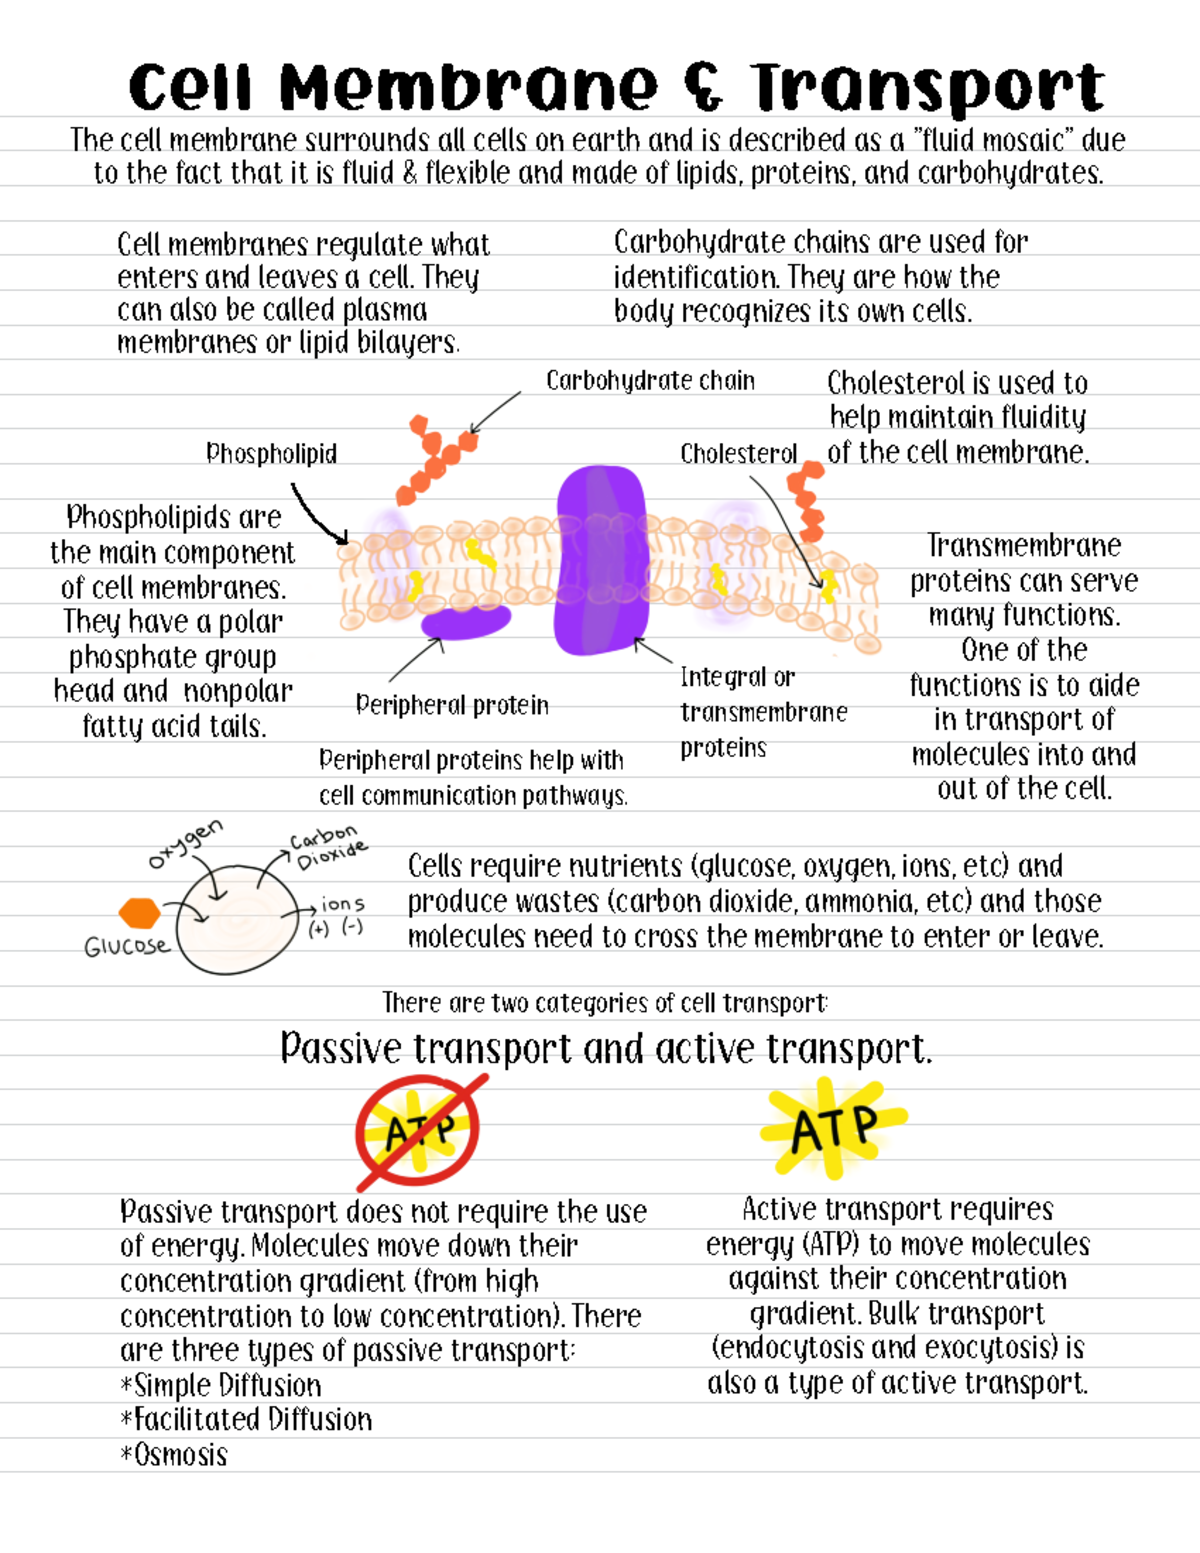 Cell Membrane & Transport
The cell membrane surrounds all cells on earth and is described as a "fluid mosaic" due
to the fact that it is fluid & flexible and made of lipids, proteins, and carbohydrates.
Cell membranes regulate what
enters and leaves a cell. They
can also be called plasma
membranes or lipid bilayers.
Carbohydrate chains are used for
identification. They are how the
body recognizes its own cells.
Carbohydrate chain
Cholesterol is used to
help maintain fluidity
of the cell membrane.
Phospholipid
Cholesterol
Phospholipids are
the main component
of cell membranes.
They have a polar
phosphate group
head and nonpolar
fatty acid tails.
Transmembrane
proteins can serve
many functions.
One of the
functions is to aide
in transport of
molecules into and
out of the cell.
Peripheral protein
Integral or
transmembrane
proteins
Peripheral proteins help with
cell communication pathways.
Oxygen
Carbon
Dioxide
Glucose
ions
(+) (-)
Cells require nutrients (glucose, oxygen, ions, etc) and
produce wastes (carbon dioxide, ammonia, etc) and those
molecules need to cross the membrane to enter or leave.
There are two categories of cell transport:
Passive transport and active transport.
ATP
ATP
Passive transport does not require the use
of energy. Molecules move down their
concentration gradient (from high
concentration to low concentration). There
are three types of passive transport:
*Simple Diffusion
*Facilitated Diffusion
*Osmosis
Active transport requires
energy (ATP) to move molecules
against their concentration
gradient. Bulk transport
(endocytosis and exocytosis) is
also a type of active transport.